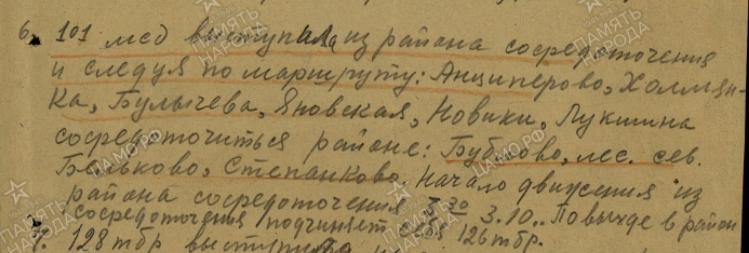 6. 101 мсд выступила из района сосредоточения
и следуя по маршруту: Анциперово, Холмян-
ка, Булычева, Яновская, Новики, Лукшина
сосредоточиться районе: Бубново, лес. сев.
Бельково, Степанково. Начало движения из
района сосредоточения 3.10.. По выходе в район
сосредоточения подчиняет себе 126 тбр.
7. 128 тбр
ПАМЯТЬ НАРОДА
ПАМЯТЬ НАРОДА